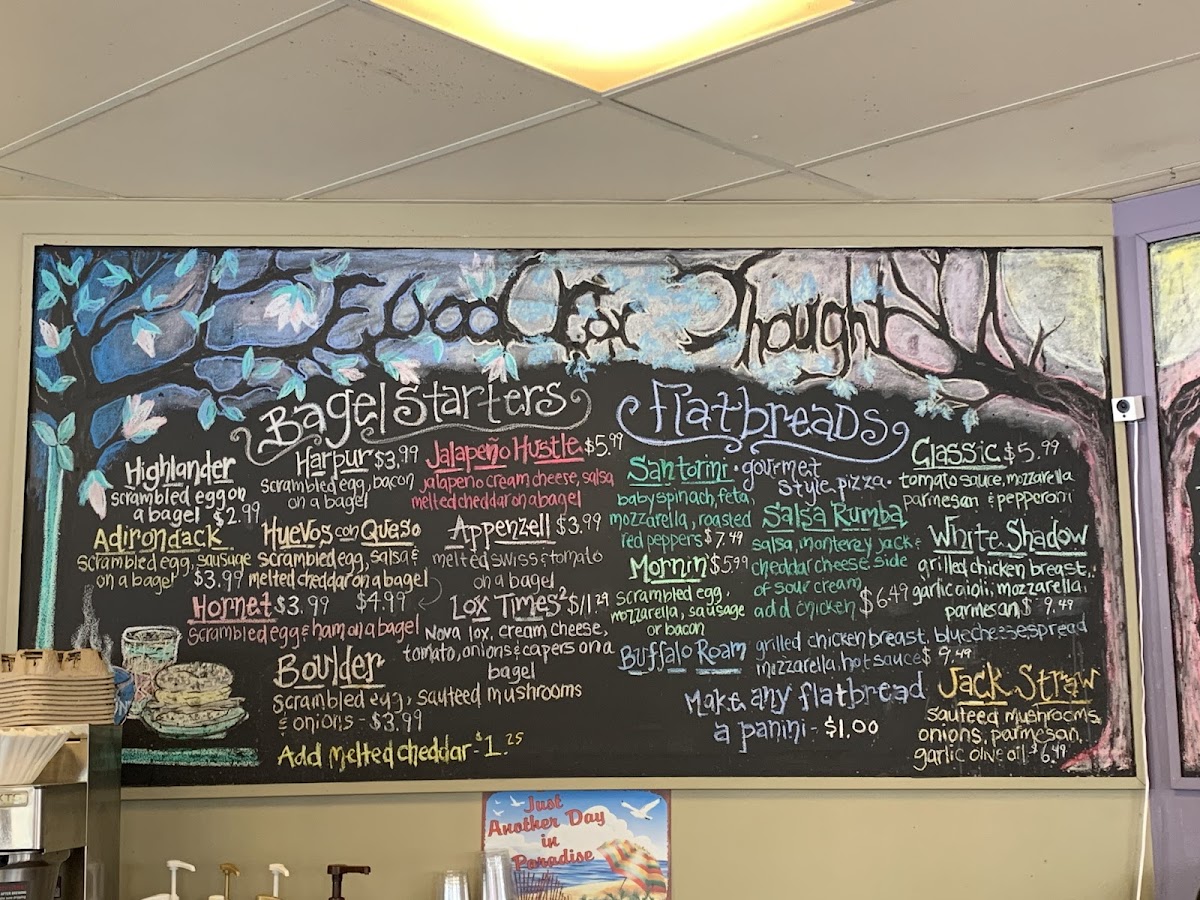 Food For Thought
Bagel Starters
Highlander
scrambled egg on
a bagel $2.99
Harpur $3.99
scrambled egg, bacon
on a bagel
Jalapeño Hustle $5.99
jalapeno cream cheese, salsa
melted cheddar on a bagel
Adirondack
scrambled egg, sausage
on a bagel $3.99
Huevos con Queso
scrambled egg, salsa &
melted cheddar on a bagel
$4.99
Appenzell $3.99
melted swiss & tomato
on a bagel
Hornet $3.99
scrambled egg & ham on a bagel
Lox Times² $11.29
Nova lox, cream cheese,
tomato, onions & capers on a
bagel
Boulder
scrambled egg, sauteed mushrooms
& onions - $3.99
Add melted cheddar - $1.25
Flatbreads
Santorini
baby spinach, feta,
mozzarella, roasted
red peppers $7.49
• gourmet
style pizza •
Classic $5.99
tomato sauce, mozzarella
parmesan & pepperoni
Salsa Rumba
salsa, monterey jack &
cheddar cheese side
of sour cream
add chicken $6.49
White Shadow
grilled chicken breast,
garlic aioli, mozzarella,
parmesan $9.49
Mornin' $5.99
scrambled egg,
mozzarella, sausage
or bacon
Buffalo Roam grilled chicken breast, blue cheese spread
mozzarella, hot sauce $9.49
Make any flatbread
a panini - $1.00
Jack Straw
sauteed mushrooms,
onions, parmesan,
garlic olive oil $6.49
Just
Another Day
in
Paradise